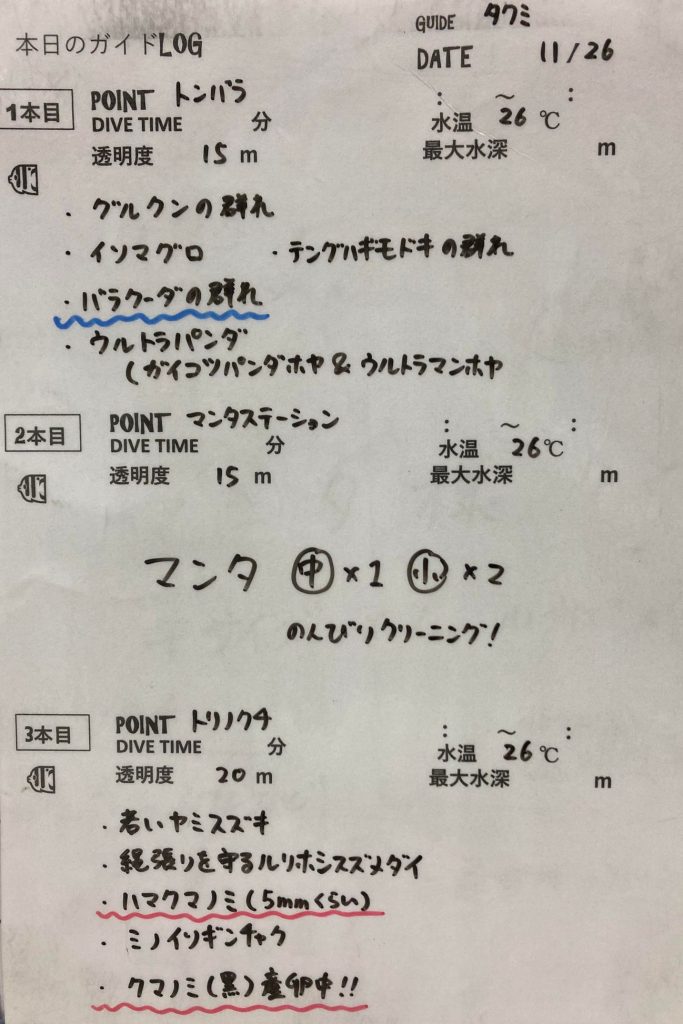 本日のガイドLOG
GUIDE タクミ
DATE 11/26
1本目 POINT トンバラ : ～ :
DIVE TIME 分 水温 26 ℃
透明度 15 m 最大水深 m
・グルクンの群れ
・イソマグロ ・テングハギモドキの群れ
・バラクーダの群れ
・ウルトラパンダ
(ガイコツパンダホヤ & ウルトラマンホヤ
2本目 POINT マンタステーション : ～ :
DIVE TIME 分 水温 26℃
透明度 15 m 最大水深 m
マンタ 中×1 小×2
のんびりクリーニング!
3本目 POINT トリノクチ : ～ :
DIVE TIME 分 水温 26℃
透明度 20 m 最大水深 m
・若いヤミスズキ
・縄張りを守るルリホシスズメダイ
・ハマクマノミ(5mmくらい)
・ミノイソギンチャク
・クマノミ(黒)産卵中!!